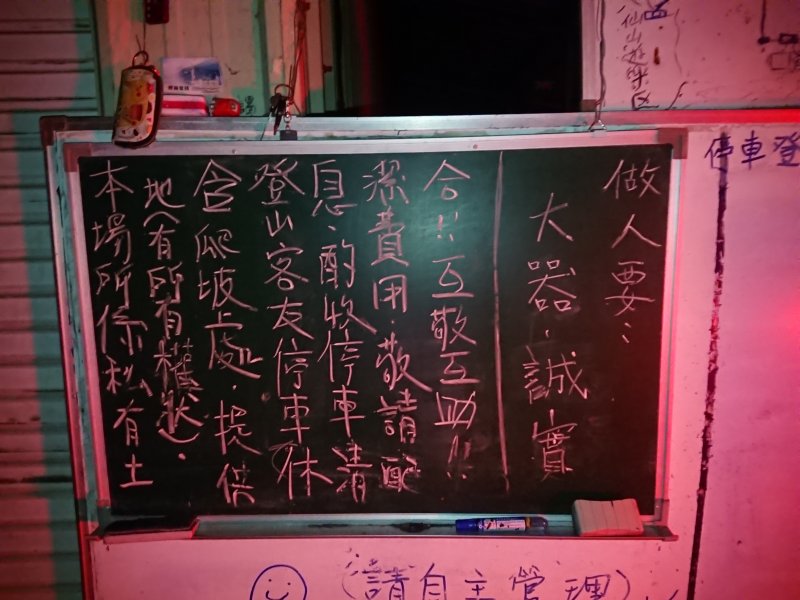 本場所係私有土
地(有所有權狀),
含爬坡上處,提供
登山客友停車休
息,酌收停車清
潔費用,敬請配
合!!互敬互助!!
做人要:
大器,誠實
停車登
(請自主管理)